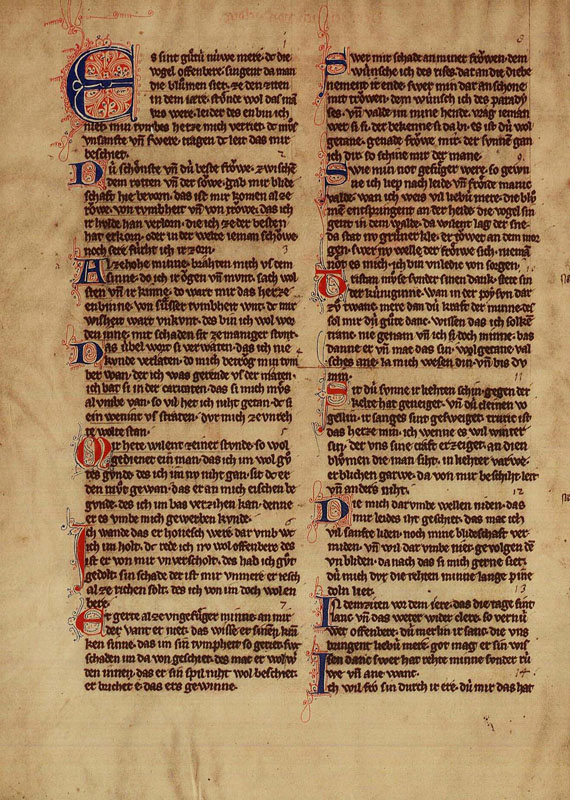 1
Es sint gv̊tú núwe mere· dc die
vogel offenbere· singent da man
die blv̊men siet· ze den ziten
in dem iare· stv̊nde wol das man
were
leider des en bin ich
niet· min tvmbes herze mich verriet· dc mv̊s
vnsanfte vn̄ swere· tragen dc leit das mir
beschiet·
2
Dú schonste vn̄ dú beste frowe· zwischē
dem rotten vn̄ der sowe· gab mir blide
schaft hie bevorn· das ist mir komen al ze
rowe· von tvmbheit vn̄ von trowe· das ich
ir hulde han verlorn· die ich ze der besten
hat erkorn· oder in der welte ieman schowe·
noch sere fúrhte ich ir zorn·
3
Al ze hohe minne· brahten mich vs dem
sinne· do ich ir ogen vn̄ mvnt· sach wol
sten vn̄ ir kinne· do wart mir das herze
enbinne· von sússer tvmbheit wnt· dc mir
wisheit wart vnkvnt· des bin ich wol wor
den inne· mit schaden sit ze maniger stvnt·
4
Das úbel wort si verwaten· das ich nie
kvnde verlaten· do mich betrog min tvm
ber wan· der ich was gerende vs der maten·
ich bat si in der caritaten· das si mich mv̊s
al vmbe van· so vil het ich niht getan· dc si
ein wenic vs straten· dvr mich ze vnreh
te wolte stan·
5
Mir hete wilent zeiner stvnde· so wol
gedienet ein man· das ich im wol gv̊
tes gvnde· des ich im nv niht gan· sit dc er
den mv̊t gewan· das er an mich eischen be
gvnde· des ich im bas verzihen kan· denne
er es vmbe mich gewerben kvnde·
6
Ich wande das er hovesch were· dar vmb wc
ich im holt· dc rede ich nv wol offenbere· des
ist er von mir vnverscholt· des had ich gv̊t
gedolt· sin schade der ist mir vnmere· er iesch
al ze richen solt· des ich von im doch wol en
bere·
7
Er gerte al ze vngefv̊ger minne· an mir
der vant er niet· das wisse er sinen krā
ken sinne· das im sin tvmpheit so geriet· swc
schaden im da von geschiet· des mac er wol ẘ
den innen· das er sin spil niht wol beschiet·
er brichet e· das ers gewinne·
8
Swer mir schade an miner frowen· dem
wúnsche ich des rises· dar an die diebe
nement ir ende· swer min dar an schone
mit trowen· dem wúnsch ich des paradys
ses· vn̄ valde im mine hende· vrag ieman
wer si si· der bekenne si da bi· es ist dú wol
getane· genade frowe mir· der svnnen gan
ich dir· so schine mir der mane·
9
Swie min not gefv̊ger were· so gewn
ne ich liep nach leide vn̄ frôide manic
valde· wan ich weis vil liebú mere· die blv̊
men entspringent an der heide· die vogel sin
gent in dem walde· da wilent lag der sne·
da stat nv grv̊ner kle· er towet an dem mor
gen· swer nv welle der frowe sich· nieman
not es mich· ich bin vnledic von sorgen·
10
Tristan mv̊se svnder sinen dank· stete sin
der kúniginne· wan in der poysyn dar
zv̊ twanc· mere dan dú kraft der minne· des
sol mir dú gv̊te danc· wissen das ich solkē
tranc nie genam vn̄ ich si doch minne· bas
danne er vn̄ mac das sin· wol getane val
sches ane· la mich wesen din vn̄ bis dv
min·
11
Sit dú svnne ir liehten schin· gegen der
kelte hat geneiget· vn̄ dú cleinen v̊
gellin· ir sanges sint gesweiget· truric ist
das herze min· ich wenne es wil winter
sin· der vns sine craft erzeiget· an dien
blv̊men die man siht· in liehter varwe·
erblichen garwe· da von mir beschiht· leit
vn̄ anders niht·
12
Die mich dar vmbe wellen niden· das
mir leides iht geschiet· das mac ich
vil sanfte liden· noch mine blideschaft ver
miden· vn̄ wil dar vmbe niet· gevolgen dē
vn bliden· da nach das si mich gerne siet·
dú mich dvr die rehten minne lange pine
doln liet·
13
In dem ziten von dem iere· das die tage sint
lanc vn̄ das weter wider clere· so vernú
wet offenbere· dú merlin ir sanc· die vns
bringent liebú mere· got mag er sin wis
sen danc· swer hat rehte minne sonder rú
we vn̄ ane wanc·
14
Ich wil fro sin dvrch ir ere· dú mir das hat